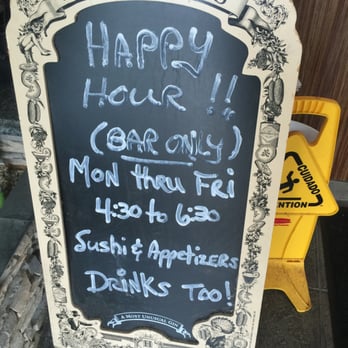 HAPPY
HOUR !!
(BAR ONLY)
MON thru FRI
4:30 to 6:30
Sushi & Appetizers
DRINKS TOO!
A MOST UNUSUAL GIN
CUIDADO